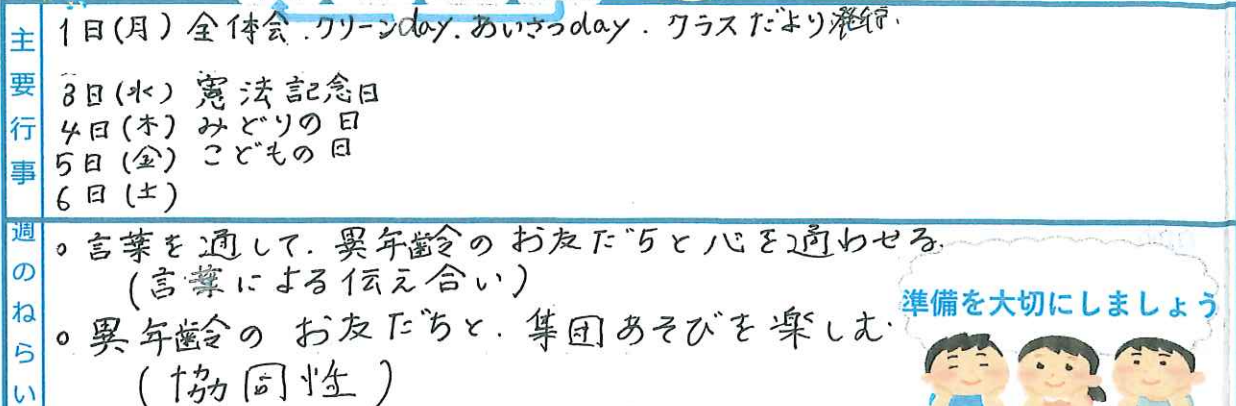 主要行事
1日(月) 全体会.クリーンday.あいさつday.クラスだより発行.
3日(水) 憲法記念日
4日(木) みどりの日
5日(金) こどもの日
6日(土)
週のねらい
○言葉を通して.異年齢のお友だちと心を通わせる.
(言葉による伝え合い)
○異年齢のお友だちと.集団あそびを楽しむ.
(協同性)
準備を大切にしましょう